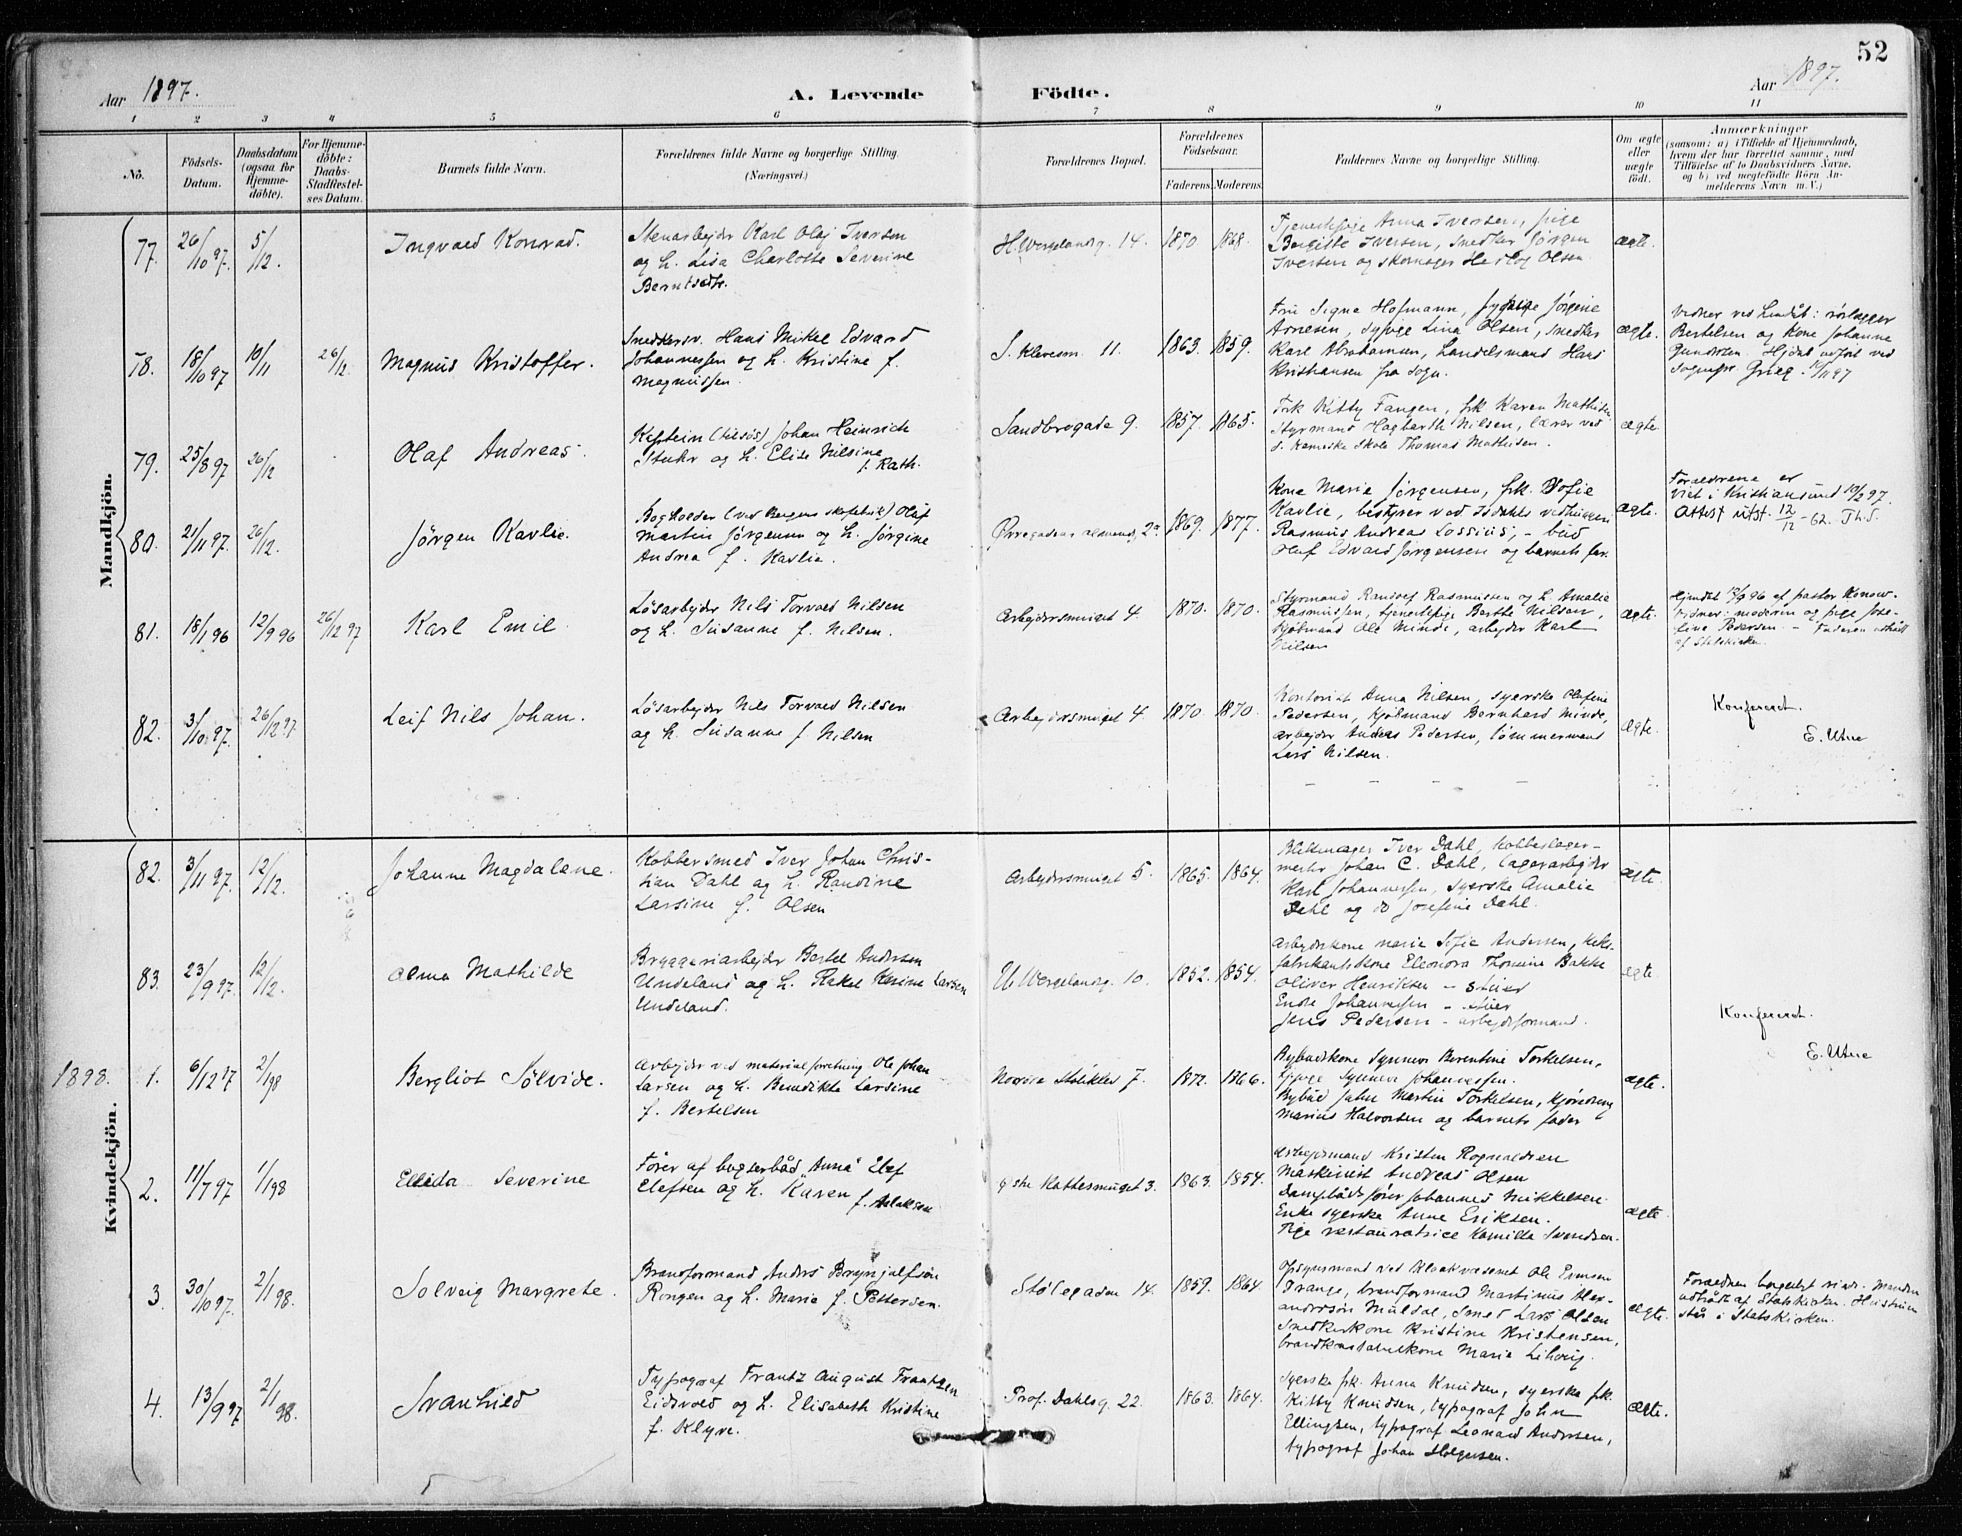 52
Aar 1897.
A. Levende Födte.
Aar 1897.
1 2 3 4 5 6 7 8 9 10 11
No.
Födsels-Datum.
Daabsdatum (ogsaa for Hjemmedöbte).
For Hjemmedöbte: Daabs-Stadfæstelses Datum.
Barnets fulde Navn.
Forældrenes fulde Navne og borgerlige Stilling.
(Næringsvei.)
Forældrenes Bopæl.
Forældrenes Födselsaar.
Faderens. Moderens.
Faddernes Navne og borgerlige Stilling.
Om ægte eller uægte födt.
Anmærkninger
(saasom: a) i Tilfælde af Hjemmedaab, hvem der har forrettet samme, med Tilföielse af to Daabsvidners Navne, og b) ved uegtefödte Börn Anmelderens Navn m. V.)
Mandkjön.
77. 26/10 97. 5/12. Ingvald Konrad.
Stenarbejder Karl Olaj Iversen
og h. Lisa Charlotte Severine
Berntsdtr.
H. Wergelandsg. 14. 1870 1868.
Tjenestepige Anna Iversen, pige
Bergitte Iversen, snedker Jørgen
Iversen og skomager Herlog Olsen.
ægte.
78. 18/10 97 10/11 26/12. Magnus Kristoffer.
Snedkersv. Hans Mikal Edvard
Johannessen og h. Kristine f.
Magnussen.
S. Kleven. 11. 1863. 1859.
Fru Signe Hofmann, sypige Jørgine
Arnesen, sypige Lina Olsen, snedker
Karl Abrahamsen, handelsmand Hans
Kristiansen fra Sogn.
ægte.
Bertelsen og Kone Johanne
Gundersen. Hjdåb udført ved
sognepr. Grieg. 10/11 97
79. 25/8 97 26/12 Olaf Andreas.
Kaptein (tilsøs) Johan Heinrich
Stuhr og h. Elise Nilsine
f. Rath.
Sandbrogade 9. 1857. 1865.
Frk Kitty Fangen, frk Karen Mathisen
Styrmand Hagbarth Nilsen, lærer ved
d. tekniske skole Thomas Mathisen.
ægte.
80. 21/11 97. 26/12. Jørgen Kavlie.
Bogholder (ved Bergens skofabrik) Oluf
Martin Jørgensen og h. Jørgine
Andrea f. Kavlie.
Ørregadens almend. 2a 1869. 1877.
Kone Marie Jørgensen, frk. Sofie
Kavlie, bestyrer ved
Rasmus Andreas Lossius, - bud
Oluf Edvard Jørgensen og barnets far.
ægte.
Forældrene er
viet i Kristiansund 10/2 97.
Attest utst. 12/12 - 62. Th.S.
81. 18/1 96 12/9 96 26/12 97 Karl Emil.
Løsarbejder Nils Torvald Nilsen
og h. Susanne f. Nilsen.
Arbejdersmuget 4. 1870. 1870.
Styrmand Randolf Rasmussen og h. Amalie
Rasmussen, tjenestepige Berthe Nilsen,
Kjølmand Ole Minde, arbejder Karl
Nilsen
ægte.
Hjmdøbt 12/9 96 af pastor Konow-
vidner: moderen og pige Jose-
fine Pedersen - Faderen udtrådt
af Statskirken.
82. 3/10 97. 26/12 97. Leif Nils Johan.
Løsarbejder Nils Torvald Nilsen
og h. Susanne f Nilsen
Arbejdersmuget 4 1870. 1870.
Kontorist Anna Nilsen, syerske Olufine
Pedersen, Kjølmand Bernhard Minde,
arbejder Anders Pedersen, tømmermand
Lars Nilsen.
ægte.
Konfereret.
E. Utne
Kvindekjön.
82. 3/11 97. 12/12. Johanne Magdalene.
Kobbersmed Iver Johan Chris-
tian Dahl og h. Randine
Larsine f. Olsen
Arbejdersmuget 5. 1865. 1864.
Blikmager Iver Dahl, Kobberslager-
mester Johan C. Dahl, lagerarbejder
Karl Johannessen, syerske Amalie
Dahl og do Josefine Dahl.
ægte.
83. 23/9 97. 12/12. Alma Mathilde
Bryggeriarbejder Bertel Andersen
Undeland og h. Rakel Karine Larsen
Undeland.
H. Wergelandsg. 10. 1852. 1854.
Arbejderkone Marie Sofie Andersen, Keks-
fabrikantskone Eleonora Thomine Bakke
Oliver Henriksen - stuer
Endre Johannessen - stuer
Jens Pedersen - arbejdsformand.
ægte
Konfereret.
E. Utne
1898. 1. 6/12 97 2/1 98 Bergliot Sølvide.
Arbejder ved materialforretning Ole Johan
Larsen og h. Benedikte Larsine
f. Bertelsen
Nordre Stølklev 7. 1872. 1866.
Bybudskone Synnøve Berentine Torkelsen,
pige Synneve Johannessen.
Bybud John Martin Torkelsen,
Marius Halvorsen og barnets fader
ægte.
2. 11/7 97 1/1 98 Ellida Severine
Fører af bugserbåd "Anna" Elef
Elefsen og h. Karen
f. Aslaksen
østre Kattesmuget 3. 1863. 1854.
Arbejdsmand Kristen Rognaldsen
Maskinist Andreas Olsen
Dampbådsfører Johannes Mikkelsen.
Enke syerske Anne Eriksen.
Pige restauratrice Kamilla Svendsen.
ægte.
3. 30/10 97. 2/1 98. Solveig Margrete.
Brandformand Anders Brynjulfsøn
Rongen og h. Marie f. Pettersen.
Stølegaden 14. 1859. 1864.
Opsynsmand ved Kloakvæsenet Ole
Drange, brandformand Martinus Alex-
andersøn Muldal, smed Lars Olsen
snedkerkone Kristine Kristensen,
brandkonstabelkone Marie
ægte.
Forældrene borgerligt viede. Manden
udtrådt af Statskirken. Hustruen
står i Statskirken.
4. 13/9 97 2/1 98. Svanhild
Typograf Frantz August Frantzen
Eidsvold og h. Elisabeth Kristine
f. Klyve.
Prof. Dahlsg. 22. 1863. 1864.
Syerske frk. Anna Knudsen, syerske frk.
Kitty Knudsen, typograf John
Ellingsen, typograf Leonard Andersen,
typograf Johan Holgersen.
ægte.